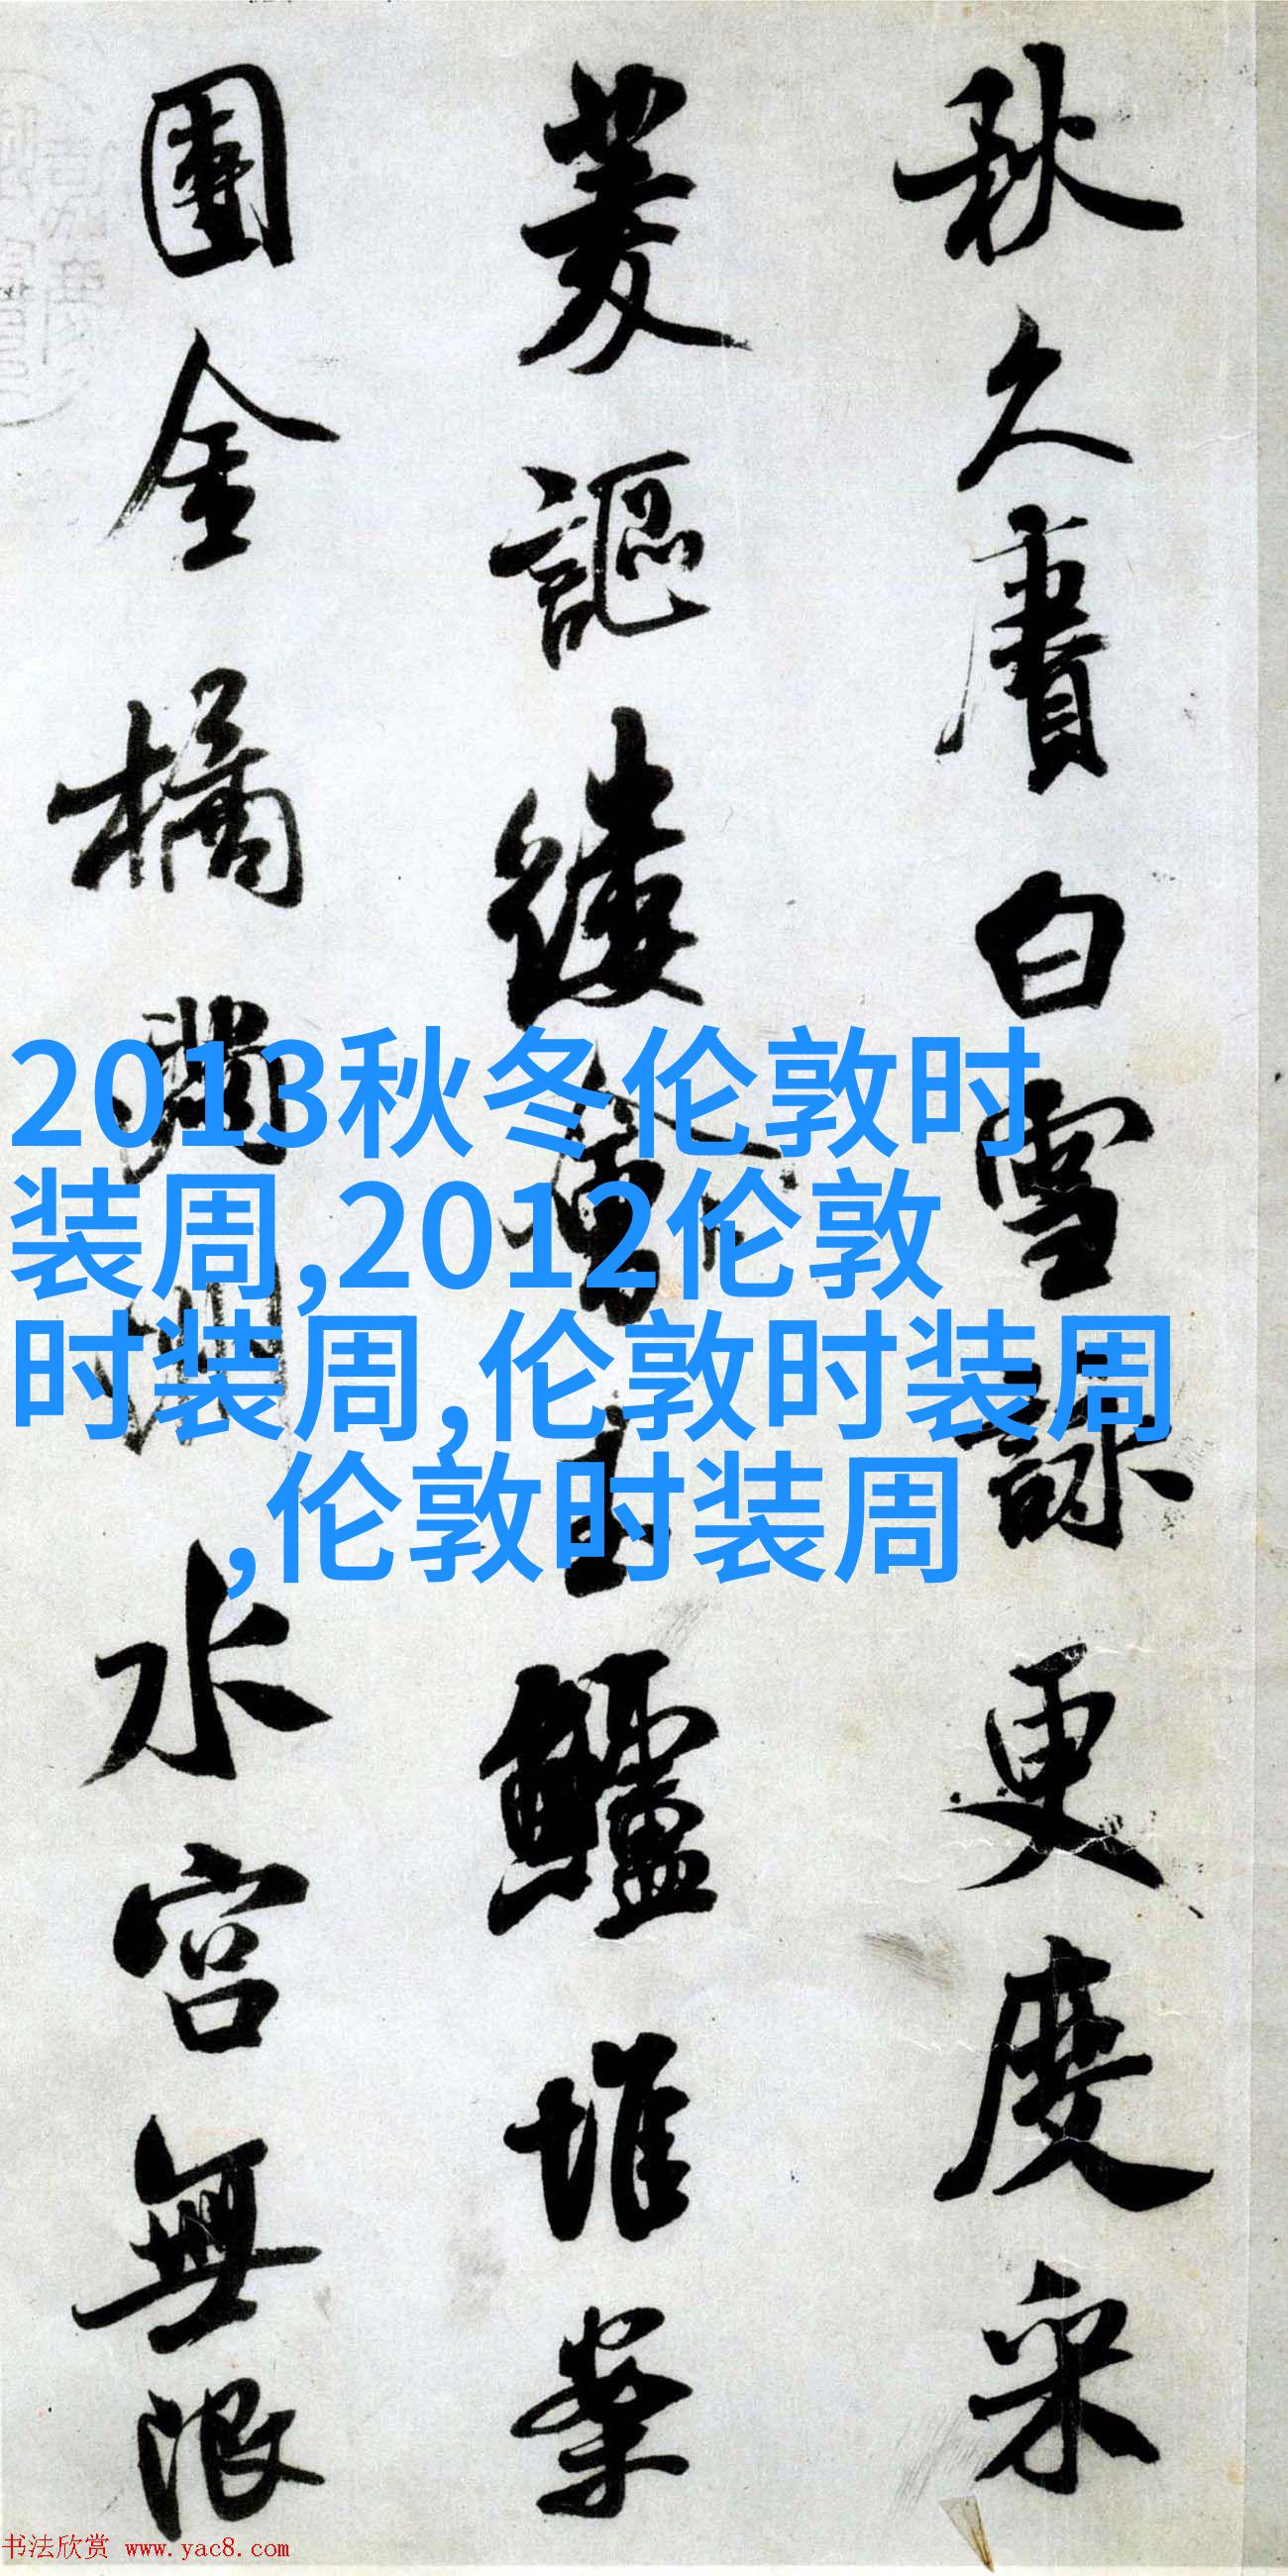 秋久賡白雪詠更度采
菱謳縷會玉鱸堆案
團金橘滿洲水宮無限
2013秋冬伦敦时
装周,2012伦敦
时装周,伦敦时装周
,伦敦时装周
书法欣赏 www.yac8.com